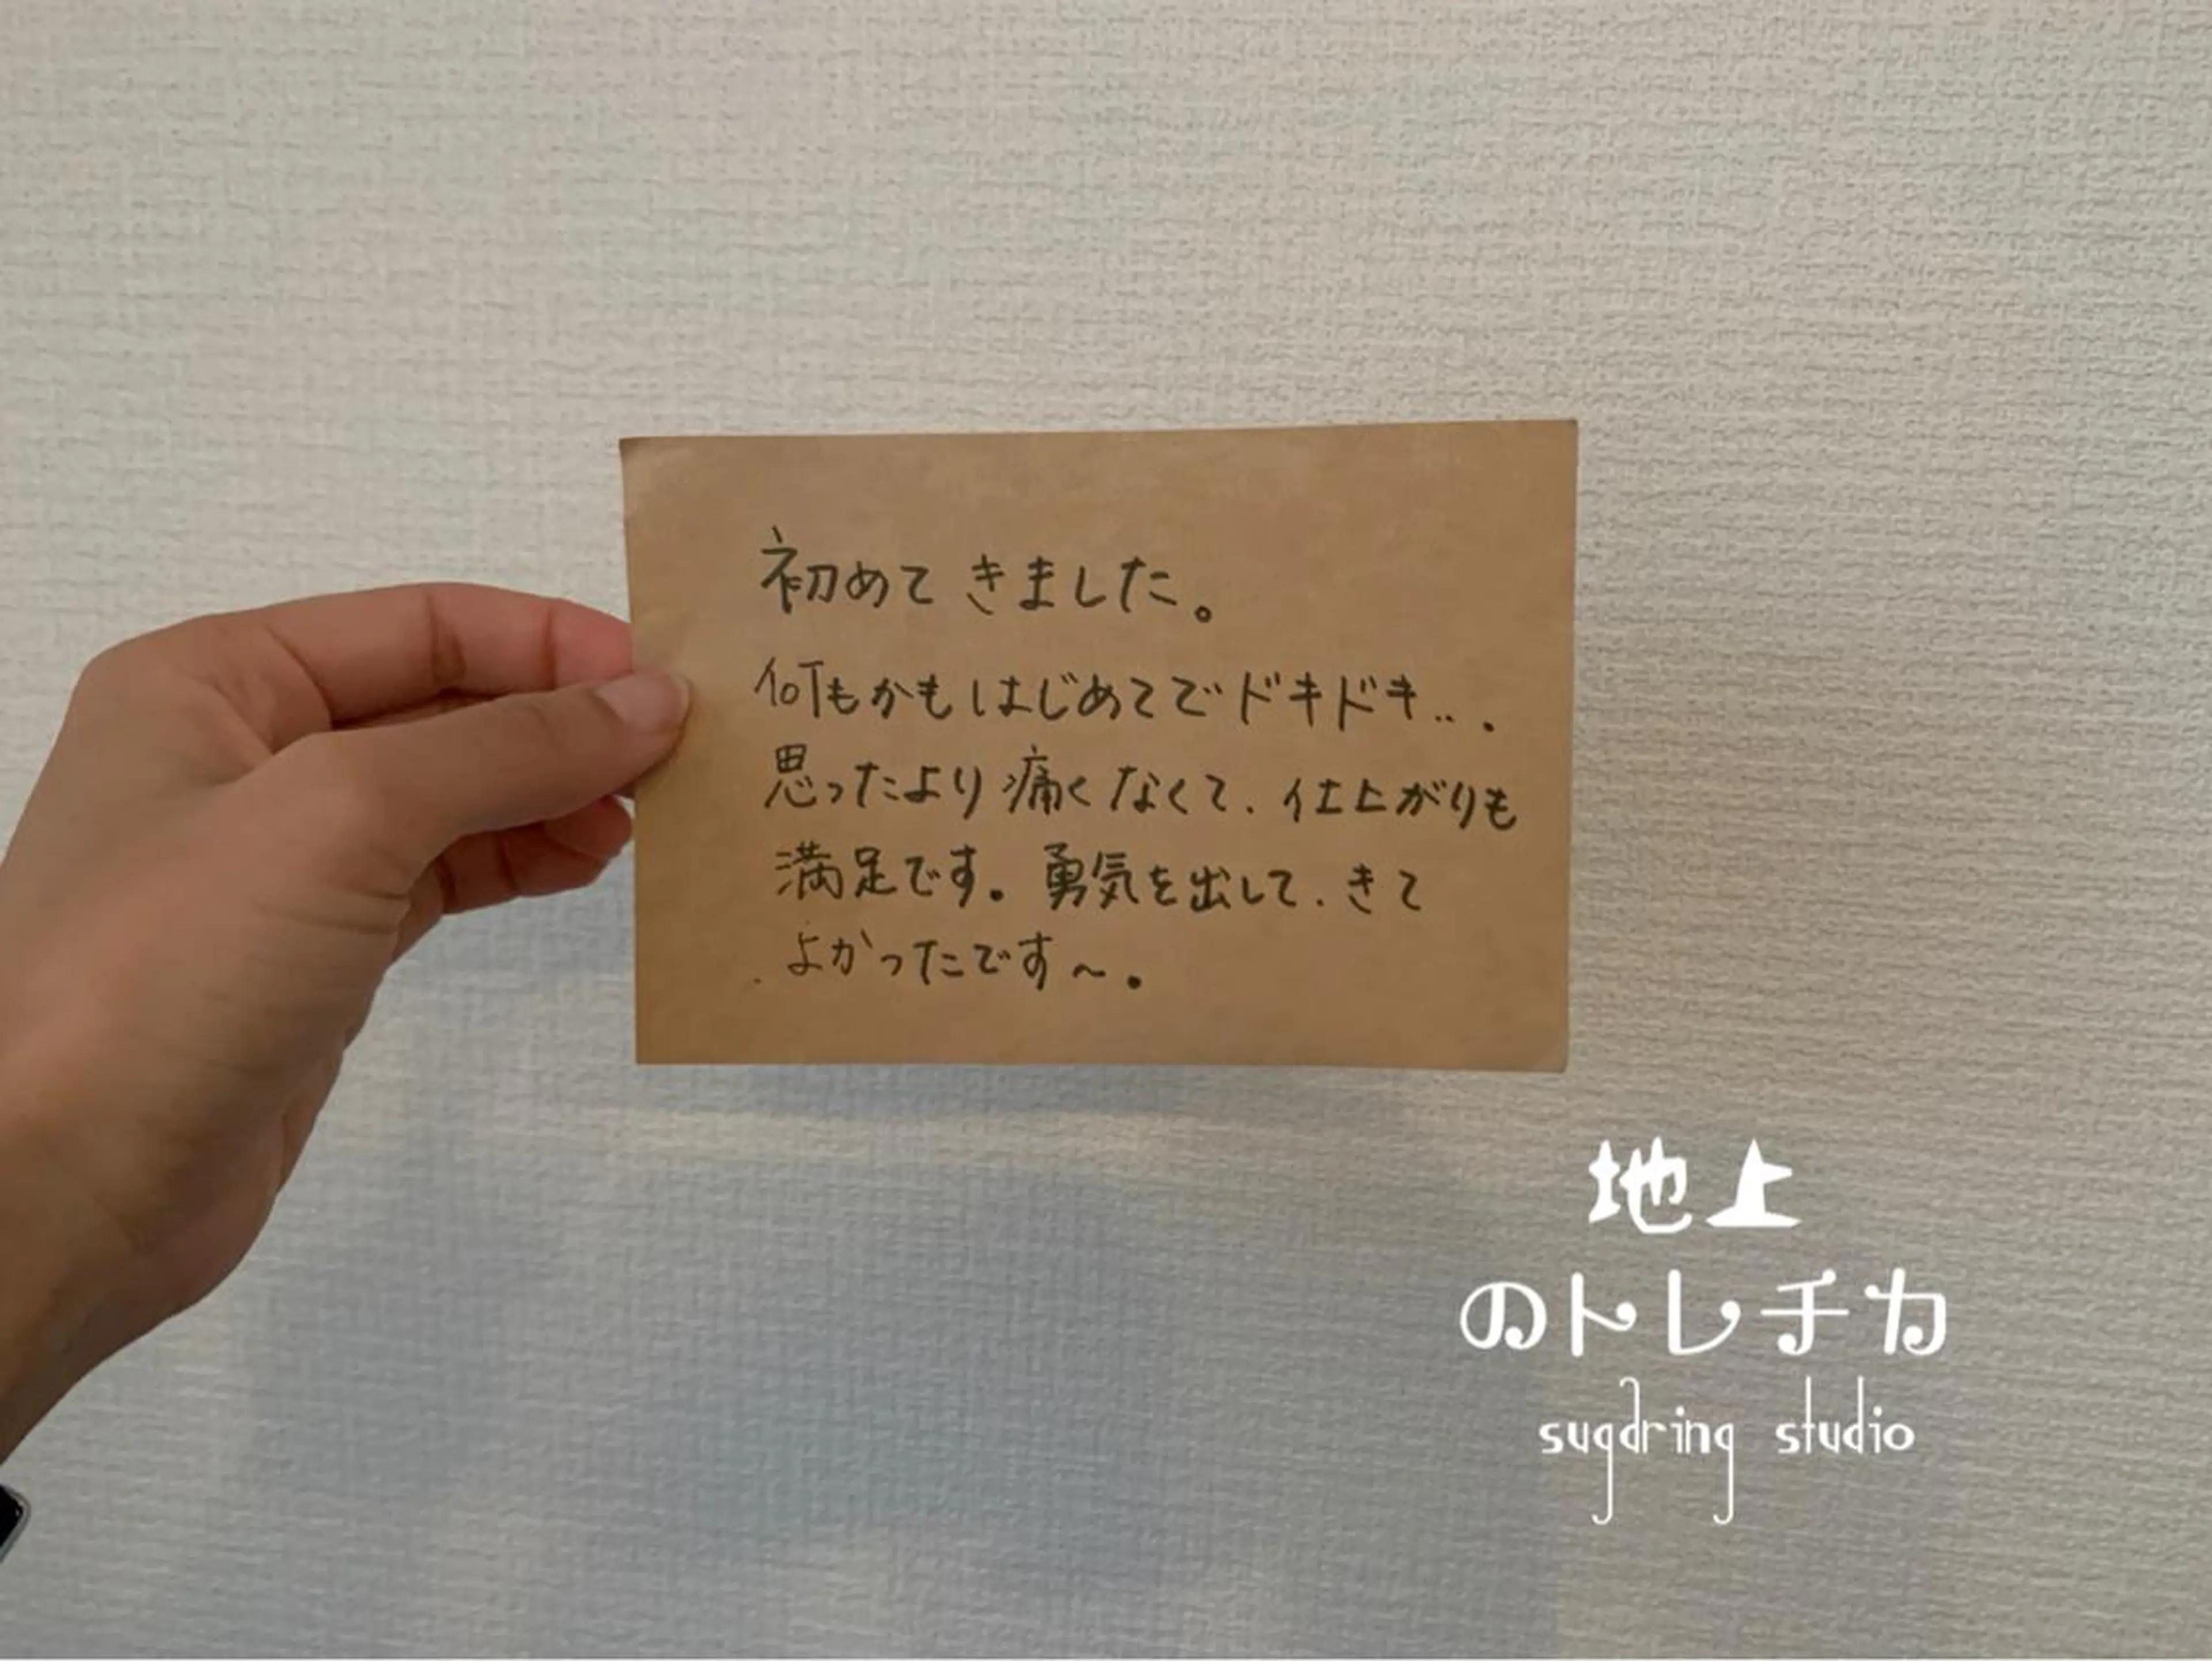 初めてきました。
何もかもはじめてでドキドキ...
思ったより痛くなくて、仕上がりも
満足です。勇気を出して、きて
よかったです〜。
地上
のトレチカ
sugdring studio